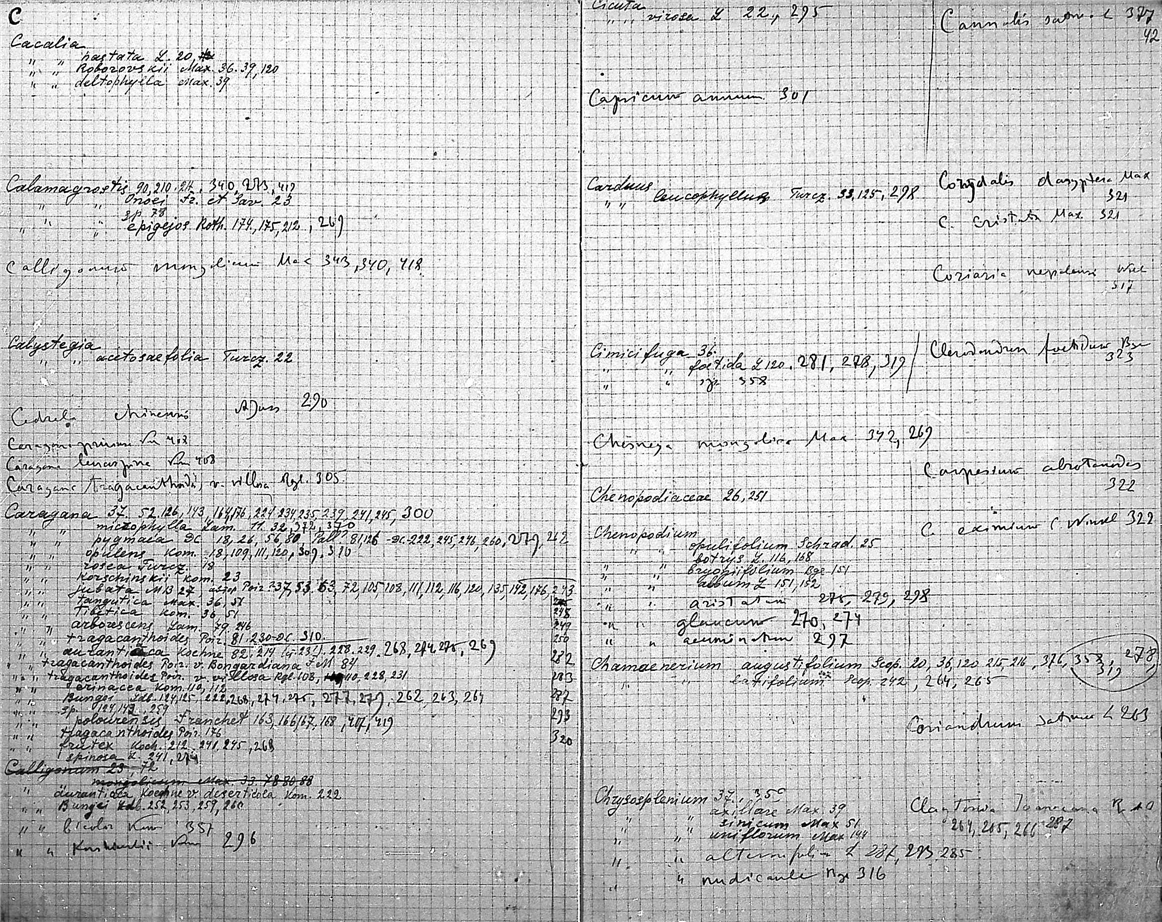 C
Cacalia
" " hastata L. 20,
" " Roborovskii Max. 36. 39, 120
" " deltophylla Max. 39
Calamagrostis 90, 210. 214. 340, 273, 417
" " Onoei Fr. et Sav. 23
sp. 78
" " epigejos Roth. 174, 175, 212, 269
Calligonum mongolicum Max 343, 340, 418
Calystegia
" " acetosaefolia Turcz. 22
Cedrela chinensis A. Juss 290
Caragana
Caragana leucospina Kom 408
Caragana tragacanthoides v. villosa Rgl. 305
Caragana 37. 52. 126, 143, 164, 176, 224 234 235 239 241, 245, 300
" " microphylla Lam. 11. 32, 372, 370
" " pygmaea DC 18, 26, 56, 80 Pall 81, 126 -DC-222, 245, 246, 260, 279, 262
" " opulens Kom. 18, 109, 111, 120, 309, 310
" " rosea Turcz. 18
" " Korschinskii Kom. 23
" " jubata MB 27 Poir 337, 53. 63, 72, 105, 108, 111, 112, 116, 120, 135, 142, 176, 243
" " tangutica Max. 36, 51
" " Tibetica Kom. 36 51 248
" " arborescens Lam. 79 246 249
" " tragacanthoides Poir. 81-230-DC. 310 250
" " aurantiaca Koehne 82. 214 228. 229, 268, 274 275, 269 282
" " tragacanthoides Poir. v. Bongardiana F.M. 84
" " tragacanthoides Poir. v. villosa Rgl. 108, 110, 228, 231 283
" " erinacea Kom. 110, 112
" " Bungei Ldb. 124, 125, 222, 268, 274, 275, 277, 279, 262, 263, 264 287
" " sp. 124, 142, 259
" " polourensis Franchet 163, 166, 167, 168, 407, 419 293
" " tragacanthoides Poir. 176
" " frutex Koch. 212. 241, 245, 268 320
" " spinosa L. 241, 274
Calligonum 23, 72
mongolicum Max. 33 78 80, 88
" " aurantiaca Koehne v. deserticola Kom. 222
" " Bungei Ldb. 252, 253, 259, 260
" " bicolor Kom 357
" " Kom 296
Cicuta
" " virosa L 22, 295
Capsicum annuum 301
Carduus
" " leucophyllus Turcz. 33, 125, 298
Cimicifuga 36.
" " foetida L 120. 281, 278, 319
" " sp. 358
Chesneya mongolica Max 342, 269
Chenopodiaceae 26, 251
Chenopodium
" " opulifolium Schrad. 25
" " botrys L. 116, 168
" " bryoniifolium Bge 151
" " album L 151, 152
" " aristatum 275, 279, 298
" " glaucum 270, 274
" " acuminatum 297
Chamaenerium augustifolium Scop. 20, 36, 120 215, 216, 376, 358, 278, 319
" " latifolium Scop. 242, 264, 265
Chrysosplenium 37, 350
" " axillare Max. 39
" " sinicum Max 51
" " uniflorum Max. 144
" " alternifolium L 287, 293 285
" " nudicaule 316
Cannabis sativa L 377
42
Corydalis dasyptera Max
321
C. cristata Max. 321
Coriaria nepalensis Wall
317
Clerodendron foetidum Bge
323
Carpesium abrotanoides
322
C. eximium C Winkl 322
Coriandrum sativum L 263
Claytonia Joanneana R
264, 265, 266 287